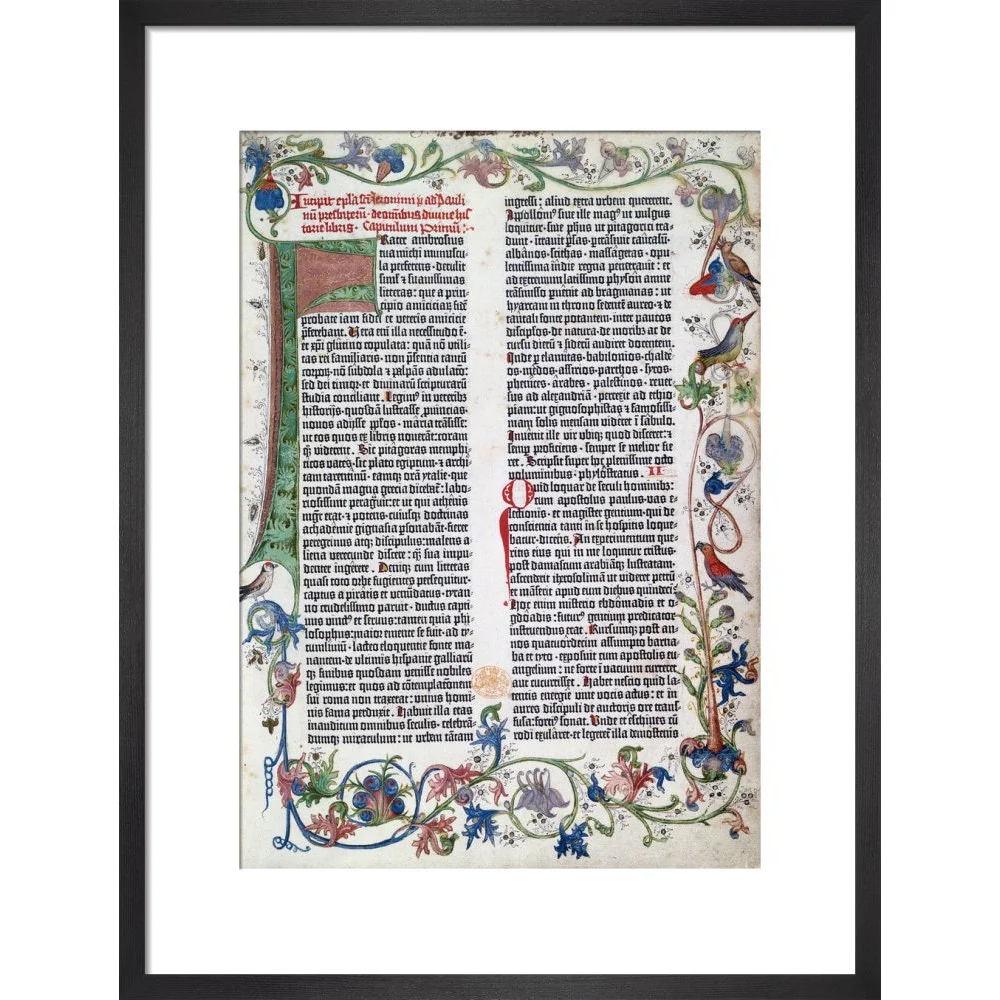 Incipit epistola sancti Jeronimi ad Pauli
num presbiterum de omnibus divine his
torie libris · Capitulum Primum :
Frater ambrosius
tua michi munuscu-
la preferens · detulit
simul et suavissimas
litteras : que a prin-
cipio amiciciarum fidem
probate iam fidei et veteris amicicie
preferebant. Vera enim illa necessitudo est ·
et xpi glutino copulata : quam non utili-
tas rei familiaris · non presentia tantum
corporum · non subdola et palpans adulatio :
sed dei timor · et divinarum scripturarum
studia conciliant. Legimus in veteribus
historijs · quosdam lustrasse provincias ·
novos adijsse populos · maria transisse :
ut eos quos ex libris noverant : coram
quoque viderent. Sic pitagoras memphi-
ticos vates · sic plato egiptum · et archi-
tam tarentinum · eamque oram ytalie · que
quondam magna grecia dicebatur : labo-
riosissime peragravit : et ut qui athenis
mgr erat · et potens · cuiusque doctrinas
achademie gignasia personabant · fieret
peregrinus atque discipulus : malens a-
liena verecunde discere : quam sua impu-
denter ingerere. Denique cum litteras
quasi toto orbe fugientes persequitur ·
captus a piratis et venundatus · tyran-
no crudelissimo paruit · ductus capti-
vus vinctus et servus : tamen quia phi-
losophus : maior emente se fuit · ad ty-
tumlivium · lacteo eloquentie fonte ma-
nantem · de ultimis hispanie galliarumque
finibus quosdam venisse nobiles
legimus : et quos ad contemplationem
sui roma non traxerat : unius homi-
nis fama perduxit. Habuit illa etas
inauditum omnibus seculis · celebran-
dumque miraculum : ut urbem tantam
ingressi : aliud extra urbem quererent.
Apollonius sive ille magus ut vulgus
loquitur · sive phus ut pitagorici tra-
dunt · intravit persas · pertransivit caucasum ·
albanos · scithas · massagetas · opu-
lentissima indie regna penetravit : et
ad extremum latissimo physon amne
transmisso pervenit ad bragmanas : ut
hyarcam in throno sedentem aureo · et de
tantali fonte potantem · inter paucos
discipulos · de natura · de moribus ac de
cursu dierum et siderum audiret docentem.
Inde per elamitas · babilonios · chalde-
os · medos · assirios · parthos · syros ·
phenices · arabes · palestinos · rever-
sus ad alexandriam · perrexit ad ethio-
piam : ut gignosophistas et famosissi-
mam solis mensam videret in sabulo.
Invenit ille vir ubique quod disceret : et
semper proficiens · semper se melior fie-
ret. Scripsit super hoc plenissime octo
voluminibus · phylostratus. II
Quid loquar de seculi hominibus :
cum apostolus paulus · vas e-
lectionis · et magister gentium · qui de
conscientia tanti in se hospitis loque-
batur · dicens. An experimentum que-
ritis eius qui in me loquitur cristus ·
post damascum arabiamque lustratam ·
ascenderit iherosolimam ut videret petrum
et manserit apud eum diebus quindecim.
Hoc enim misterio ebdomadis et o-
gdoadis : futurus gentium predicator
instruendus erat. Rursumque post an-
nos quatuordecim assumpto barna-
ba et tyto · exposuit cum apostolis eu-
angelium : ne forte in vacuum curreret
aut cucurrisset. Habet nescio quid la-
tentis energie vive vocis actus : et in
aures discipuli de auctoris ore trans-
fusa : fortius sonat. Unde et eschines cum
rodi exularet · et legeretur illa demostenis